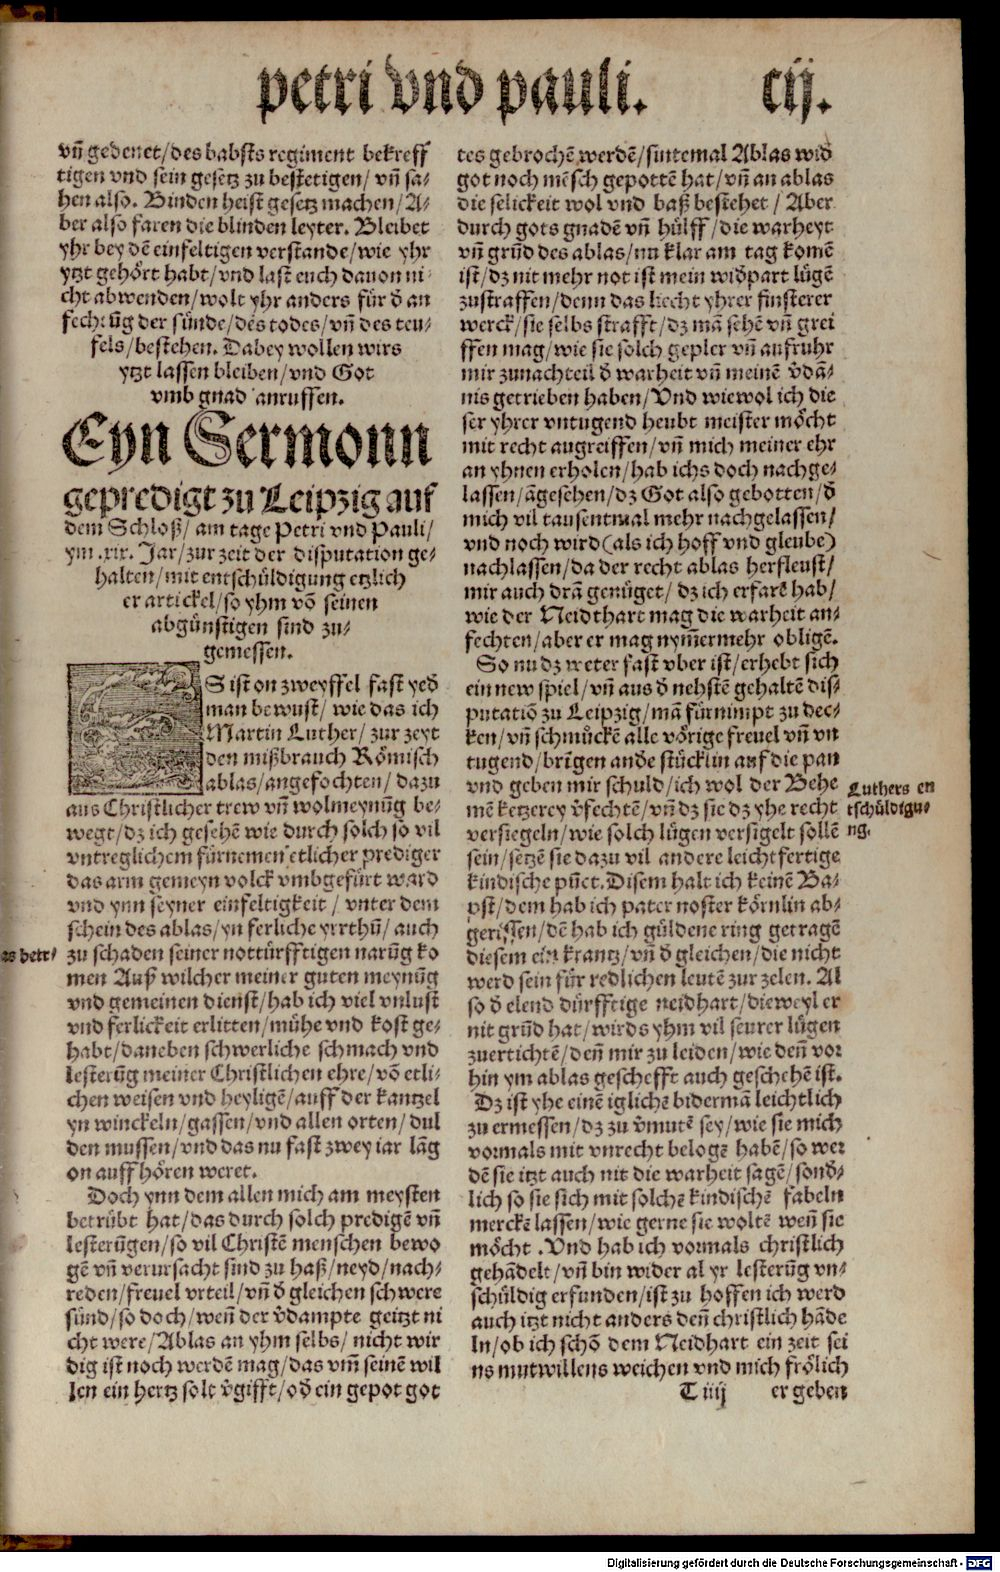 petri vnd pauli. cij.
vñ gedenet/des babsts regiment bekreff
tigen vnd sein gesetz zu bestetigen/ vñ sa-
hen also. Binden heist gesetz machen/ A-
ber also faren die blinden leyter. Bleibet
yhr bey dē einfeltigen verstande/wie yhr
ytzt gehört habt/vnd last euch dauon ni-
cht abwenden/wolt yhr anders für d̄ an
fechtūg der sünde/des todes/vñ des teu-
fels/bestehen. Dabey wollen wirs
ytzt lassen bleiben/vnd Got
vmb gnad anruffen.
Eyn Sermonn
gepredigt zu Leipzig auf
dem Schloß/ am tage Petri vnd Pauli/
ym .xix. Jar/zur zeit der disputation ge-
halten/mit entschüldigung etzlich
er artickel/so yhm vō seinen
abgünstigen sind zu-
gemessen.
ES ist on zweyffel fast yed̄
man bewust/ wie das ich
Martin Luther/ zur zeyt
den mißbrauch Römisch
ablas/angefochten/ dazu
aus Christlicher trew vñ wolmeynūg be-
wegt/dz ich gesehē wie durch solch so vil
vntreglichem fürnemen etlicher prediger
das arm gemeyn volck vmbgefürt ward
vnd ynn seyner einfeltigkeit / vnter dem
schein des ablas/yn ferliche yrrthū/ auch
zu schaden seiner nottürfftigen narūg ko
men Auß wilcher meiner guten meynūg
vnd gemeinen dienst/hab ich viel vnlust
vnd ferlickeit erlitten/mühe vnd kost ge-
habt/daneben schwerliche schmach vnd
lesterūg meiner Christlichen ehre/vō etli-
chen weisen vnd heyligē/auff der kantzel
yn winckeln/gassen/vnd allen orten/dul
den mussen/vnd das nu fast zwey iar lāg
on auffhören weret.
Doch ynn dem allen mich am meysten
betrübt hat/das durch solch predigē vñ
lesterūgen/so vil Christē menschen bewo
gē vñ verursacht sind zu haß/neyd/nach-
reden/freuel vrteil/vñ d̄ gleichen schwere
sünd/so doch/weñ der v̄dampte geitzt ni
cht were/Ablas an yhm selbs/ nicht wir
dig ist noch werdē mag/das vm̄ seinē wil
len ein hertz solt v̄gifft/od̄ ein gepot got
as betr-
tes gebrochē werdē/sintemal Ablas wid̄
got noch mēsch gepottē hat/vñ an ablas
die selickeit wol vnd baß bestehet / Aber
durch gots gnadē vñ hülff/die warheyt
vñ grūd des ablas/nu klar am tag komē
ist/dz nit mehr not ist mein wid̄part lügē
zustraffen/denn das liecht yhrer finsterer
werck/sie selbs strafft/dz mā sehē vñ grei
ffen mag/wie sie solch gepler vñ aufruhr
mir zunachteil d̄ warheit vñ meinē v̄dā-
nis getrieben haben/Vnd wiewol ich die
ser yhrer vntugend heubt meister möcht
mit recht angreiffen/vñ mich meiner ehr
an yhnen erholen/hab ichs doch nachge-
lassen/āgesehen/dz Got also gebotten/d̄
mich vil tausentmal mehr nachgelassen/
vnd noch wird(als ich hoff vnd gleube)
nachlassen/da der recht ablas herfleust/
mir auch drā genüget/ dz ich erfarē hab/
wie der Neidthart mag die warheit an-
fechten/aber er mag nym̄ermehr obligē.
So nu dz weter fast vber ist/erhebt sich
ein new spiel/vñ aus d̄ nehstē gehaltē dis-
putatiō zu Leipzig/mā fürnimpt zu dec-
ken/vñ schmückē alle vörige freuel vñ vn
tugend/brīgen and̄e stücklin auf die pan
vnd geben mir schuld/ich wol der Behe
mē ketzerey v̄fechtē/vñ dz sie dz yhe recht
versiegeln/wie solch lügen versigelt sollē
sein/setzē sie dazu vil andere leichtfertige
kindische pūct. Disem halt ich keinē Ba-
pst/dem hab ich pater noster körnlin ab-
gerissen/dē hab ich güldene ring getragē
diesem ein krantz/vñ d̄ gleichen/die nicht
werd sein für redlichen leutē zur zelen. Al
so d̄ elend dürfftige neidhart/dieweyl er
nit grūd hat/wirds yhm vil seurer lügen
zuertichtē/deñ mir zu leiden/wie deñ vor
hin ym ablas geschefft auch geschehē ist.
Dz ist yhe einē iglichē bidermā leichtlich
zu ermessen/dz zu v̄mutē sey/wie sie mich
vormals mit vnrecht belogē habē/so wer
dē sie itzt auch nit die warheit sagē/sond̄-
lich so sie sich mit solchē kindischē fabeln
merckē lassen/wie gerne sie woltē weñ sie
möcht .Vnd hab ich vormals christlich
gehādelt/vñ bin wider al yr lesterūg vn-
schüldig erfunden/ist zu hoffen ich werd
auch itzt nicht anders deñ christlich hāde
ln/ob ich schō dem Neidhart ein zeit sei
ns mutwillens weichen vnd mich frölich
T iiij er geben
Luthers en
tschüldigu-
ng.
Digitalisierung gefördert durch die Deutsche Forschungsgemeinschaft - DFG